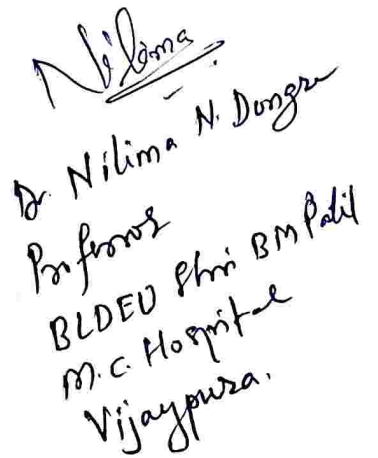 Nilima
Dr. Nilima N. Dongre
Professor
BLDEU Shri BM Patil
M.C. Hospital
Vijaypura.